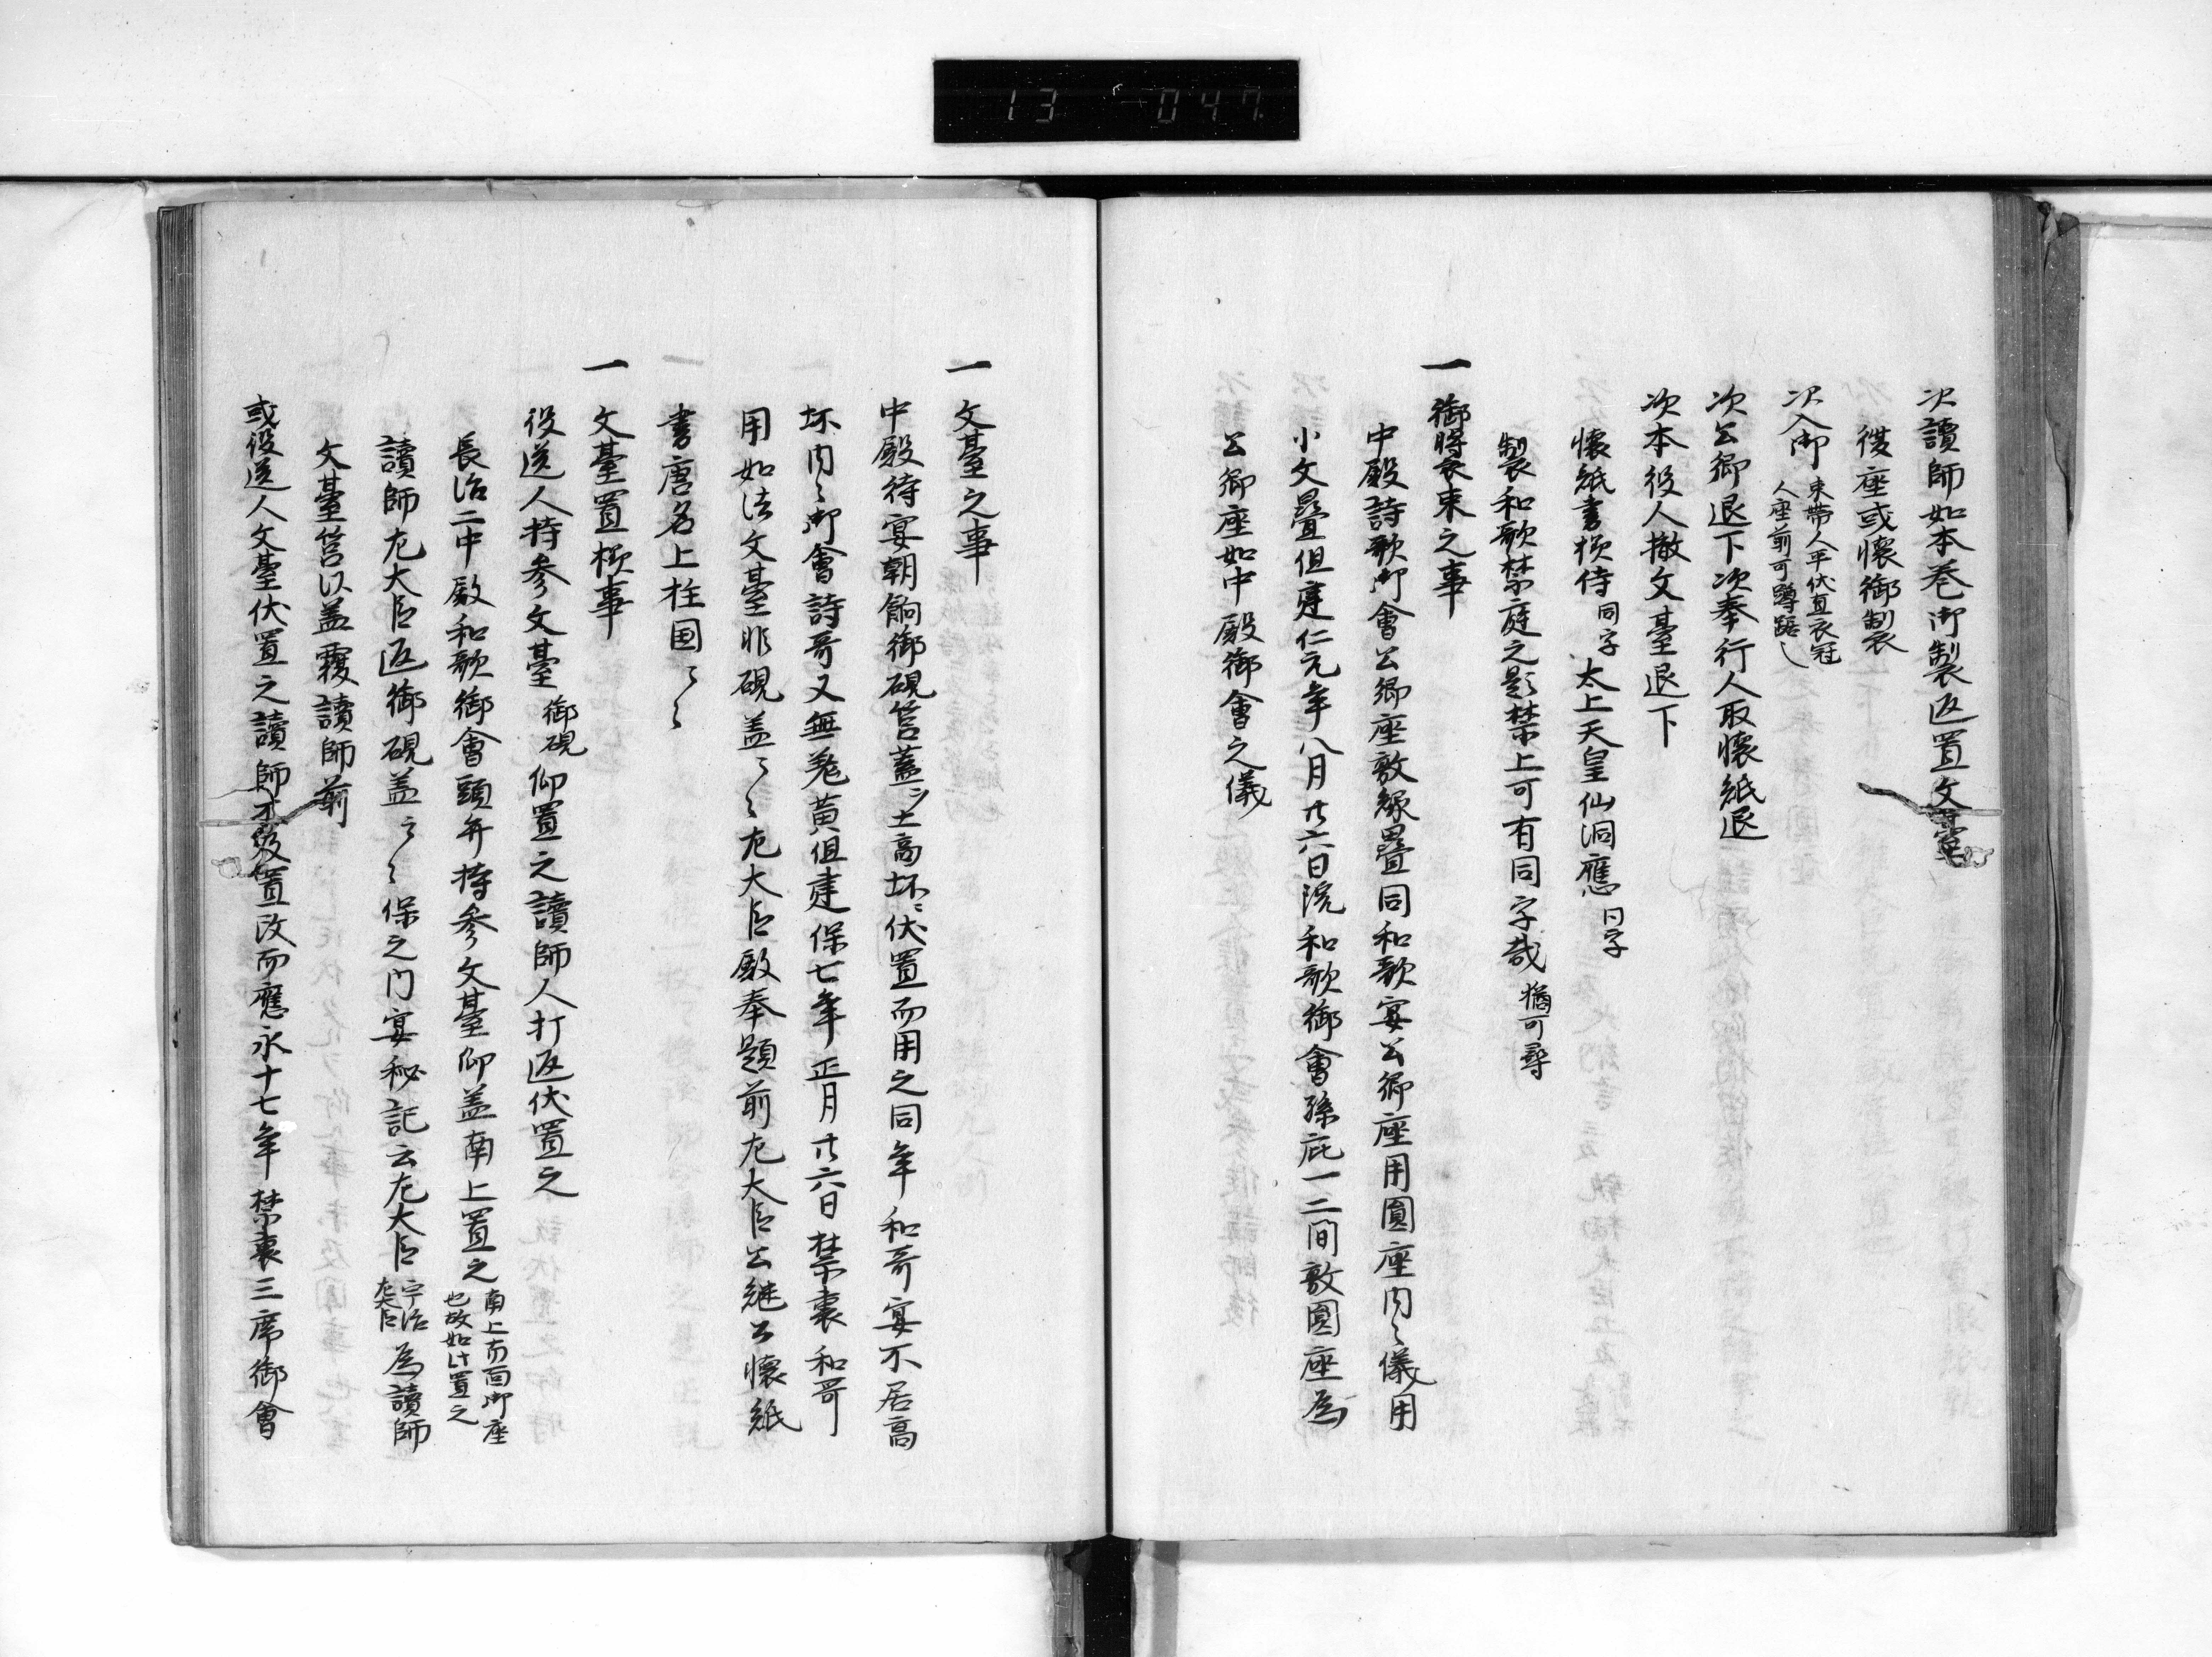 13 047
次讀師如本卷御製返置文臺
復座或懷御製
次入御 束帶人平伏直衣冠
人座前可蹲踞
次公卿退下次奉行人取懷紙退
次本役人撤文臺退下
懷紙書樣侍 同字 太上天皇仙洞應 同字
製和歌禁庭之影禁上可有同字哉 猶可尋
一 御裝束之事
中殿詩歌御會公卿座敷緣疊同和歌宴公卿座用圓座内々儀用
小文疊但建仁元年八月廿六日院和歌御會孫庇一二間敷圓座為
公卿座如中殿御會之儀
一 文臺之事
中殿待宴朝餉御硯筥蓋ヲ土高坏ニ伏置而用之同年和哥宴不居高
坏内々御會詩哥又無差黄但建保七年正月廿六日禁裏和哥
用如法文臺非硯盖々々左大臣殿奉題前左大臣公継公懷紙
書唐名上柱国々々
一 文臺置樣事
役送人持参文臺 御硯 仰置之讀師人打返伏置之
長治二中殿和歌御會頭弁持参文臺仰盖南上置之 南上而面御座
也故如此置之
讀師左大臣返御硯盖々々保之门宴秘記云左大臣 宇治
左大臣 為讀師
文臺筥以盖覆讀師前
或役送人文臺伏置之讀師不及置改而應永十七年禁裏三席御會